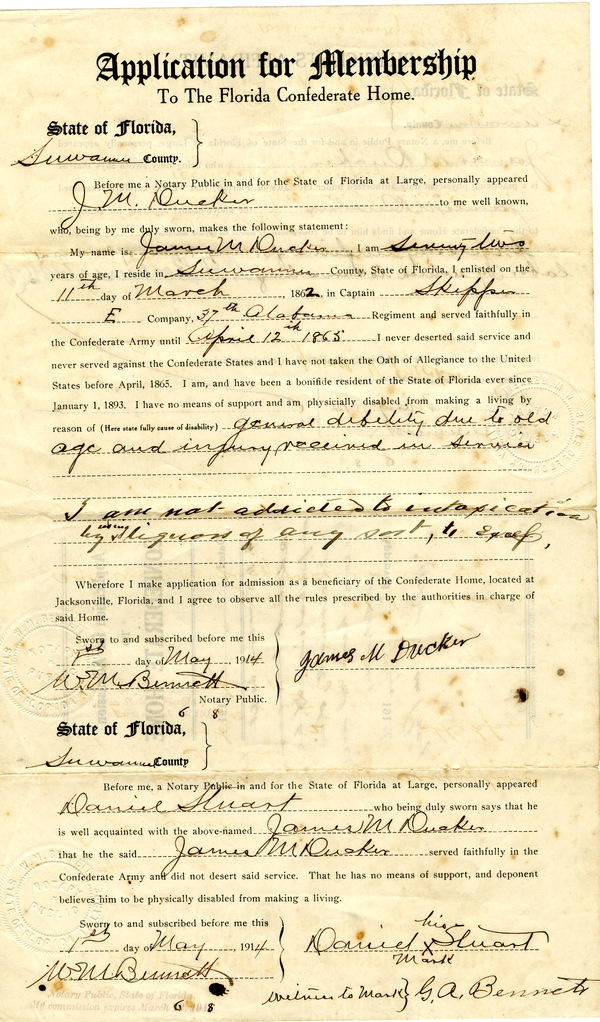 Application for Membership
To The Florida Confederate Home.
State of Florida,
Suwannee County.
Before me a Notary Public in and for the State of Florida at Large, personally appeared
J. M. Ducker to me well known,
who, being by me duly sworn, makes the following statement:
My name is James M Ducker, I am Seventy two
years of age, I reside in Suwannee County, State of Florida, I enlisted on the
11th day of March 1862, in Captain Skipper
E Company, 37th Alabama Regiment and served faithfully in
the Confederate Army until April 12th 1865 I never deserted said service and
never served against the Confederate States and I have not taken the Oath of Allegiance to the United
States before April, 1865. I am, and have been a bonifide resident of the State of Florida ever since
January 1, 1893. I have no means of support and am physicially disabled from making a living by
reason of (Here state fully cause of disability) general debility due to old
age and injury received in service
I am not addicted to intoxication
by using liquors of any sort, to
Wherefore I make application for admission as a beneficiary of the Confederate Home, located at
Jacksonville, Florida, and I agree to observe all the rules prescribed by the authorities in charge of
said Home.
Sworn to and subscribed before me this
1st day of May, 1914
James M Ducker
W. M. Bennett
Notary Public.
6 8
State of Florida,
Suwannee County
Before me, a Notary Public in and for the State of Florida at Large, personally appeared
Daniel Stuart who being duly sworn says that he
is well acquainted with the above-named James M Ducker
that he the said James M Ducker served faithfully in the
Confederate Army and did not desert said service. That he has no means of support, and deponent
believes him to be physically disabled from making a living.
Sworn to and subscribed before me this
1st day of May, 1914
his
Daniel x Stuart
Mark
W. M. Bennett
witness to Mark } G. A. Bennett
Notary Public, State of Florida.
My commission expires March
6 8